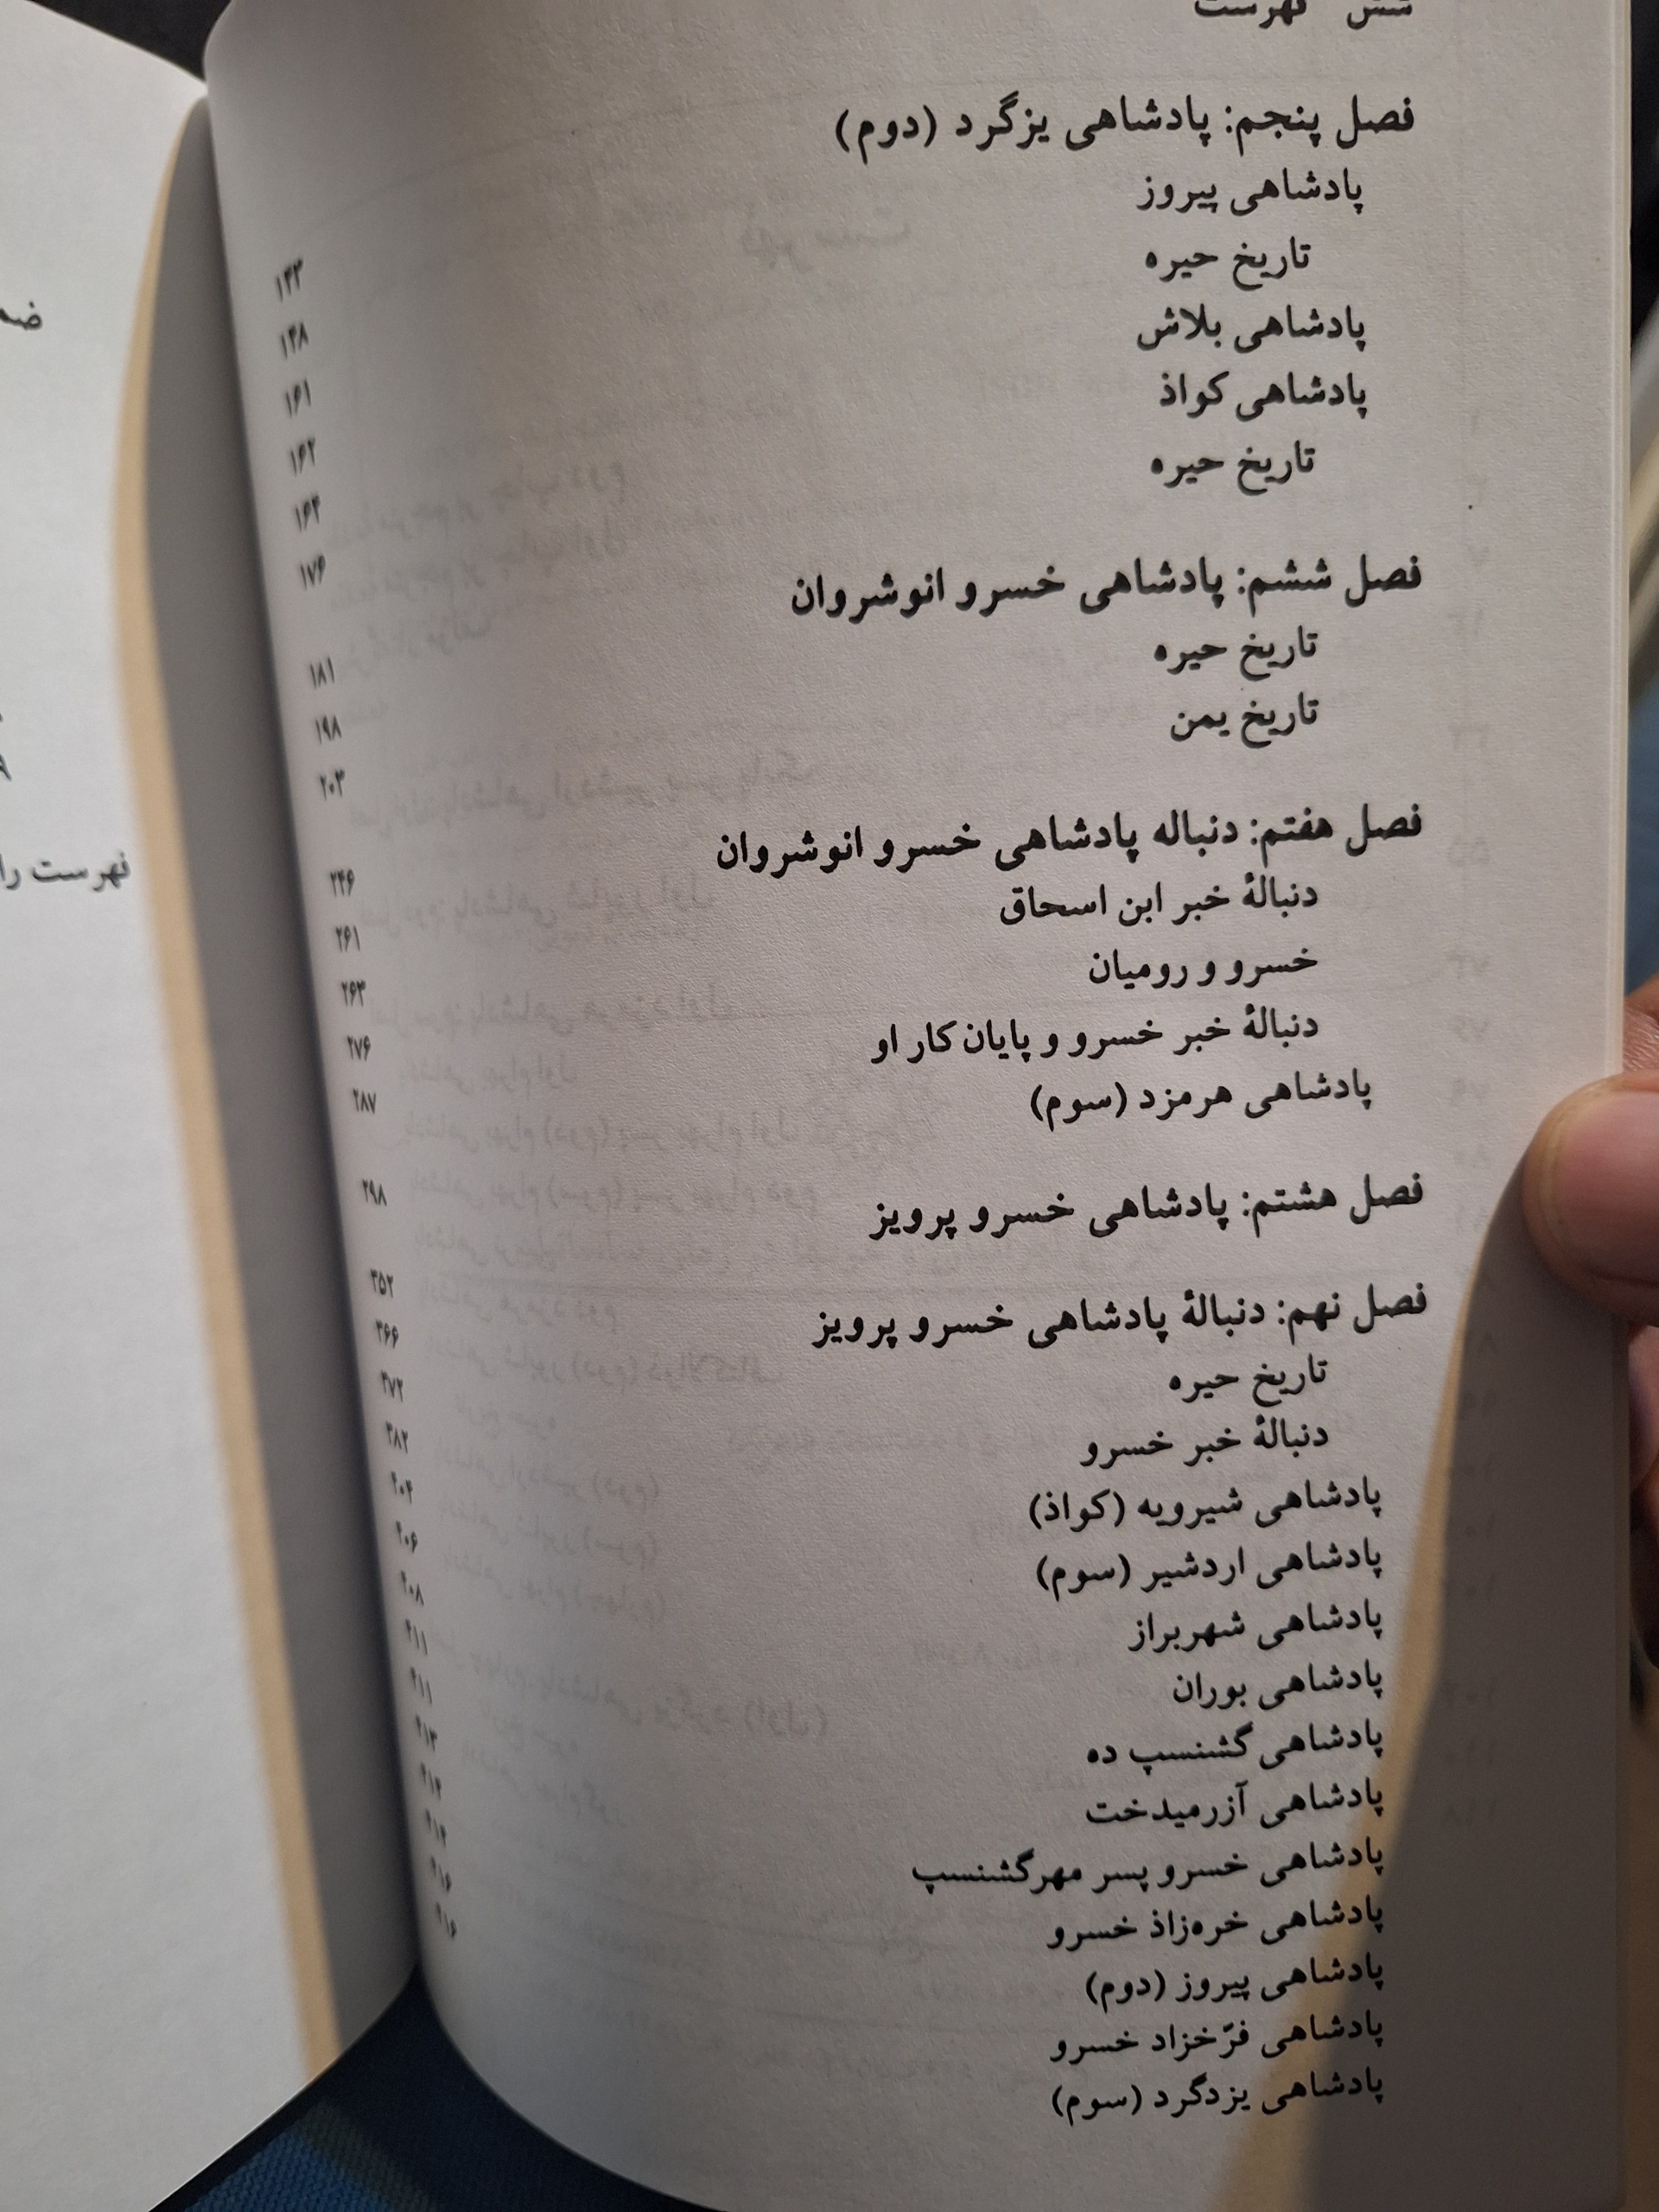 شش فهرست
فصل پنجم: پادشاهی یزگرد (دوم) ۱۴۳
پادشاهی پیروز ۱۴۸
تاریخ حیره ۱۶۱
پادشاهی بلاش ۱۶۲
پادشاهی کواذ ۱۶۴
تاریخ حیره ۱۷۶
فصل ششم: پادشاهی خسرو انوشروان ۱۸۱
تاریخ حیره ۱۹۸
تاریخ یمن ۲۰۳
فصل هفتم: دنباله پادشاهی خسرو انوشروان ۲۴۶
دنبالهٔ خبر ابن اسحاق ۲۶۱
خسرو و رومیان ۲۶۳
دنبالهٔ خبر خسرو و پایان کار او ۲۷۶
پادشاهی هرمزد (سوم) ۲۸۷
فصل هشتم: پادشاهی خسرو پرویز ۲۹۸
فصل نهم: دنبالهٔ پادشاهی خسرو پرویز ۳۵۲
تاریخ حیره ۳۶۶
دنبالهٔ خبر خسرو ۳۷۲
پادشاهی شیرویه (کواذ) ۳۸۲
پادشاهی اردشیر (سوم) ۴۰۴
پادشاهی شهربراز ۴۰۶
پادشاهی بوران ۴۰۸
پادشاهی گشنسپ ده ۴۱۱
پادشاهی آزرمیدخت ۴۱۱
پادشاهی خسرو پسر مهرگشنسپ ۴۱۳
پادشاهی خره‌زاذ خسرو ۴۱۴
پادشاهی پیروز (دوم) ۴۱۴
پادشاهی فرّخزاد خسرو ۴۱۶
پادشاهی یزدگرد (سوم) ۴۱۶
فهرست